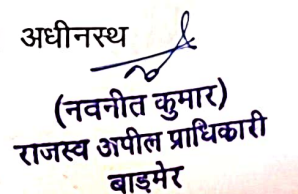 अधीनस्थ
(नवनीत कुमार)
राजस्व अपील प्राधिकारी
बाड़मेर